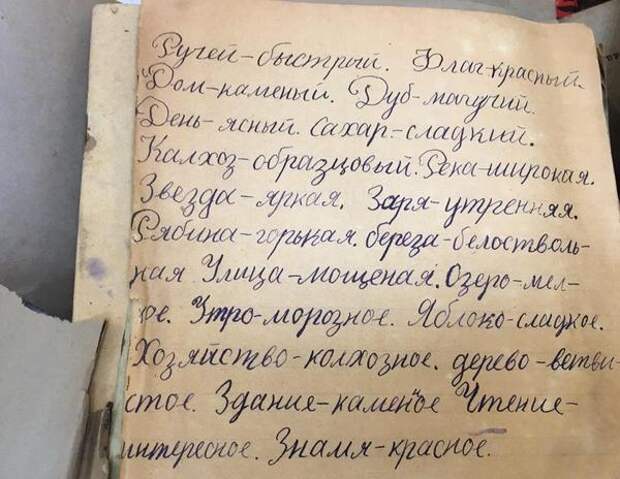 Ручей-быстрый. Флаг-красный.
Дом-каменый. Дуб-магучий.
День-ясный. Сахар-сладкий.
Калхоз-образцовый. Река-широкая.
Звезда-яркая. Заря-утренняя.
Рябина-горькая. береза-белостволь-
ная Улица-мощеная. Озеро-мел-
ое. Утро-морозное. Яблоко-сладкое.
Хозяйство-колхозное. дерево-ветви-
стое. Здание-каменое Чтение-
интересное. Знамя-красное.